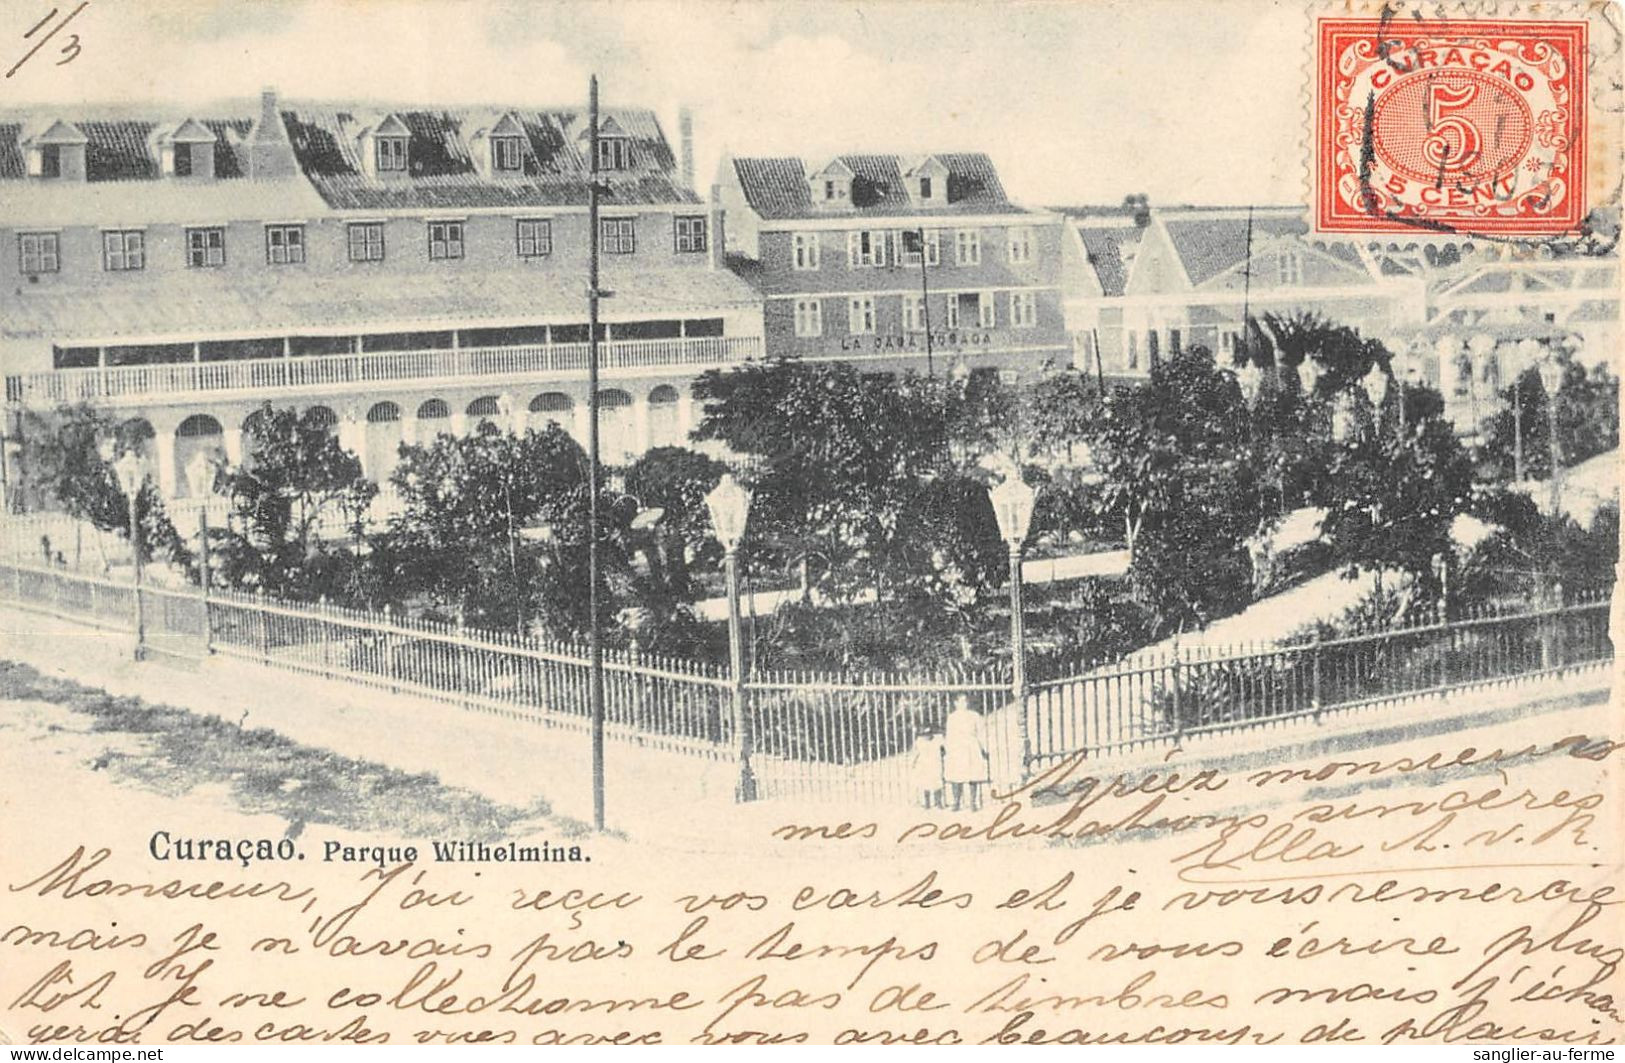 1/3
CURAÇAO
5
5 CENT
LA CASA ROSADA
Agréez monsieur
mes salutations sincères
Ella A. v. R.
Curaçao. Parque Wilhelmina.
Monsieur, J'ai reçu vos cartes et je vous remercie
mais je n'avais pas le temps de vous écrire plus
tôt Je ne collectionne pas de timbres mais j'échan
gerai des cartes vues avec vous avec beaucoup de plaisir
sanglier-au-ferme